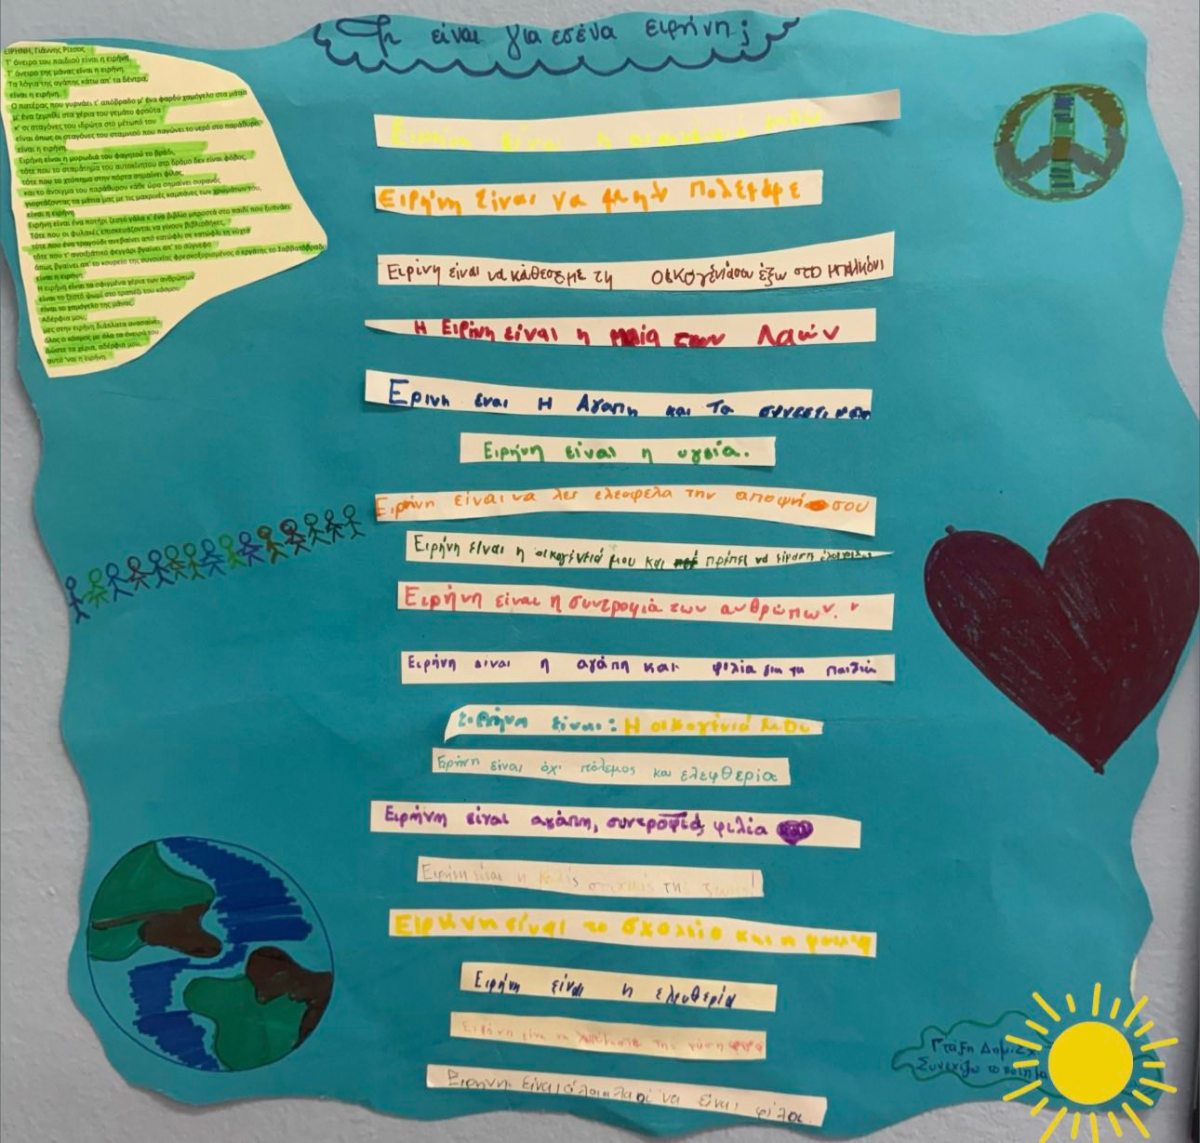 Τι είναι για εσένα ειρήνη;
ΕΙΡΗΝΗ, Γιάννης Ρίτσος
Τ' όνειρο του παιδιού είναι η ειρήνη
Τ' όνειρο της μάνας είναι η ειρήνη
Τα λόγια της αγάπης κάτω απ' τα δέντρα,
είναι η ειρήνη.
Ο πατέρας που γυρνάει τ' απόβραδο μ' ένα φαρδύ χαμόγελο στα μάτια
μ' ένα ζεμπίλι στα χέρια του γεμάτο φρούτα
κ' οι σταγόνες του ιδρώτα στο μέτωπό του
είναι όπως οι σταγόνες του σταμνιού που παγώνει το νερό στο παράθυρο
είναι η ειρήνη.
Ειρήνη είναι η μυρωδιά του φαγητού το βράδι,
τότε που το σταμάτημα του αυτοκίνητου στο δρόμο δεν είναι φόβος,
τότε που το χτύπημα στην πόρτα σημαίνει φίλος,
και το άνοιγμα του παράθυρου κάθε ώρα σημαίνει ουρανός
γιορτάζοντας τα μάτια μας με τις μακρινές καμπάνες των χρωμάτων του,
είναι η ειρήνη.
Ειρήνη είναι ένα ποτήρι ζεστό γάλα κ' ένα βιβλίο μπροστά στο παιδί που ξυπνάει
Τότε που οι φυλακές επισκευάζονται να γίνουν βιβλιοθήκες,
τότε που ένα τραγούδι ανεβαίνει από κατώφλι σε κατώφλι τη νύχτα
τότε που τ' ανοιξιάτικο φεγγάρι βγαίνει απ' το σύγνεφο
όπως βγαίνει απ' το κουρείο της συνοικίας φρεσκοξυρισμένος ο εργάτης το Σαββατόβραδο
είναι η ειρήνη
Η ειρήνη είναι τα σφιγμένα χέρια των ανθρώπων
είναι το ζεστό ψωμί στο τραπέζι του κόσμου
είναι το χαμόγελο της μάνας.
Αδέρφια μου,
μες στην ειρήνη διάπλατα ανασαίνει
όλος ο κόσμος με όλα τα όνειρά του
δώστε τα χέρια, αδέρφια μου,
αυτό 'ναι η ειρήνη.
Ειρήνη είναι η
Ειρήνη είναι να μην πολεμάμε
Ειρίνη είναι να κάθεσαι με τη έξω στο μπαλκόνι
Η Ειρήνη είναι η των Λαών
Ερινη εναι Η Αγαπη και Τα
Ειρήνη είναι η υγεία.
Ειρήνη είναι να λες ελεφεέλα την αποψή σου
Ειρήνη είναι η οικογένειά μου και πρέπει να
Ειρήνη είναι η συντροφιά των ανθρώπων.
Ειρήνη είναι η αγάπη και φιλία για τα παιδιά
Ειρήνη είναι: Η οικογένιά μου
Ερήνη είναι όχι πόλεμος και ελεφθερία
Ειρήνη είναι αγάπη, συντροφιά, φιλία
Ειρήνη είναι η της
Ειρήνη είναι το σχολείο και η φιλία
Ειρήνη είναι η ελευθερία
Ειρήνη
Ειρήνη είναι όλοι οι λαοί να είναι φίλοι
Γ τάξη
Συνεχίζω το ποίημα